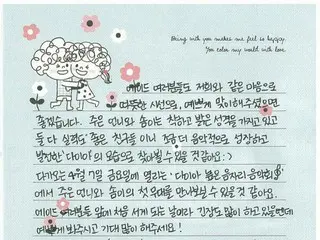 Being with you makes me feel so happy.
You color my world with love.
에이드 여러분들도 저희와 같은 마음으로
따뜻한 시선으로, 예쁘게 많이해주셨으면
좋겠습니다. 주은 언니와 솜이는 착하고 밝은 성격을 가지고 있고
둘 다 실력도 좋은 친구들 이니 조금 더 음악적으로 성장하고
발전한 '다이아'의 모습으로 찾아뵐 수 있을 것 같아요 :)
다가오는 4월 7일 금요일에 열리는 '다이아
에서 주은 언니와 솜이의 첫 무대를 만나보실 수 있을 것 같아요.
에이드 여러분들 앞에 처음 서게 되는 날이라 긴장도 많이 하고 있을텐데
예쁘게 봐주시고 기대 많이 해주세요!